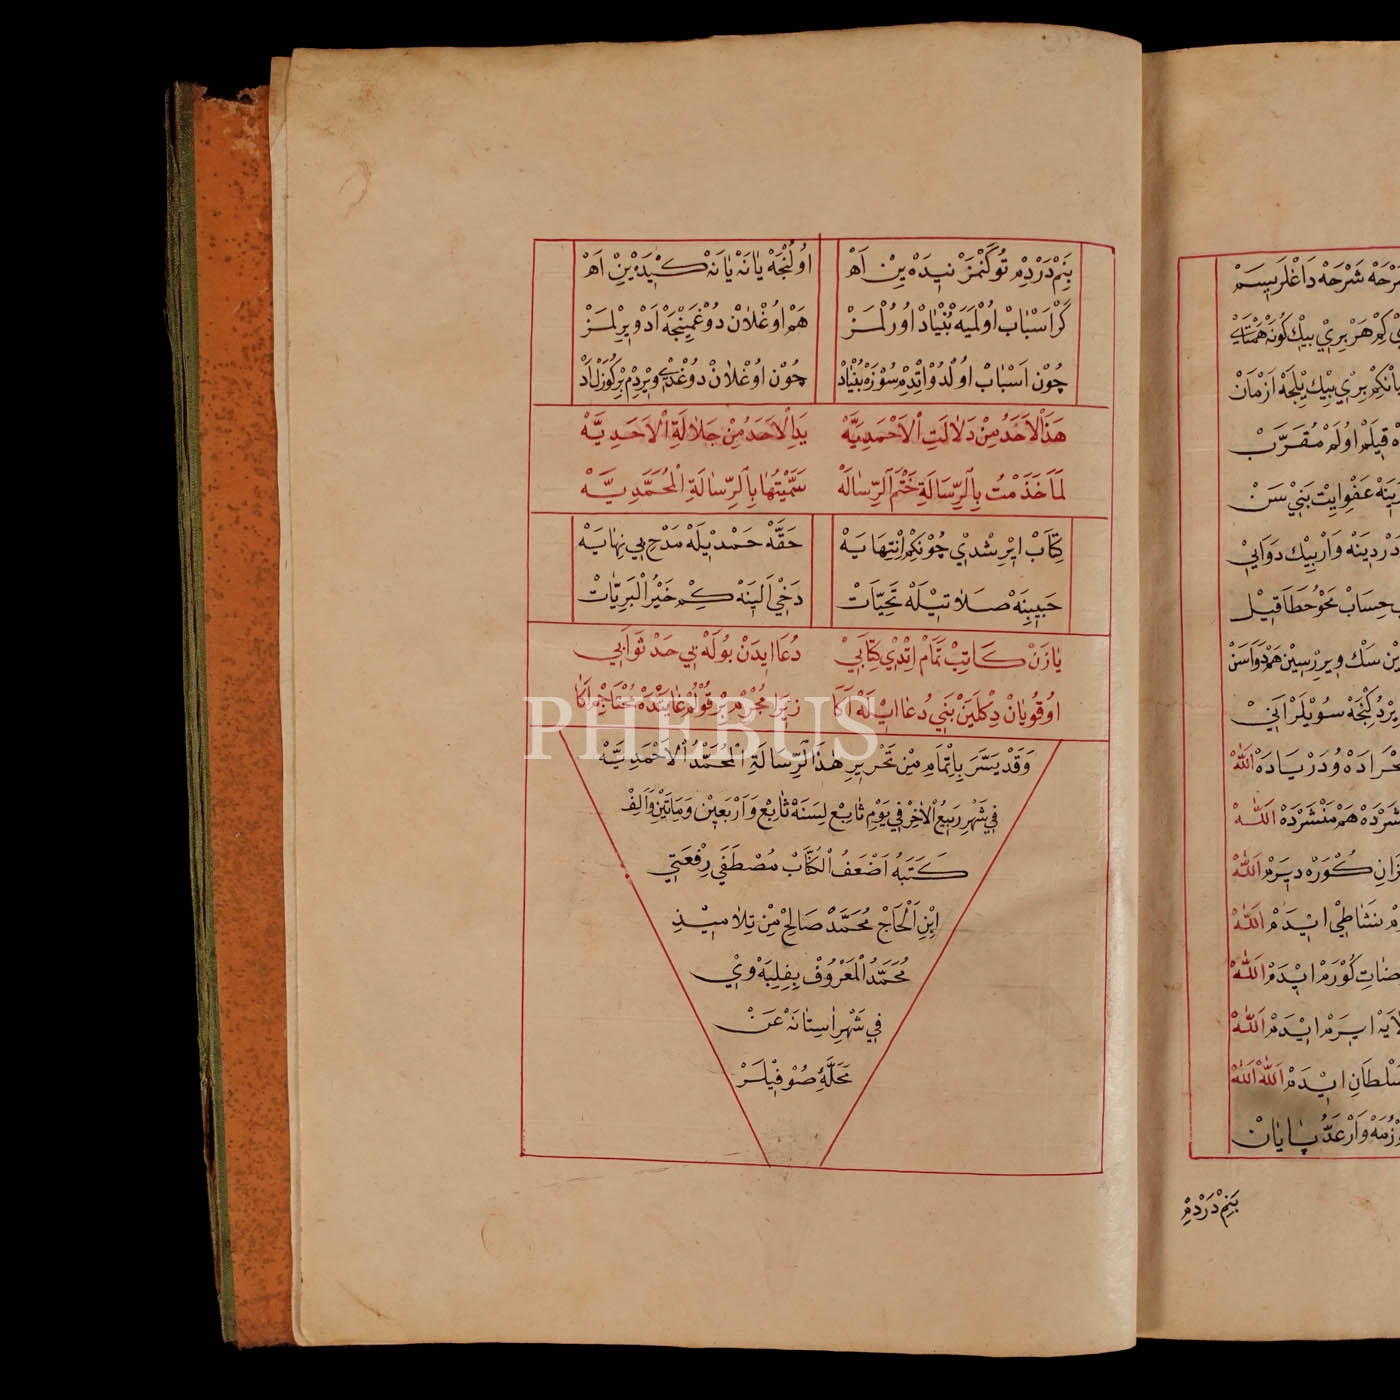 بَنِمْ دَرْدِمْ تُوكَنْمَزْ نِيدَهْ يِنْ آهْ اوُلُنْجَهْ يٰانَهْ يٰانَهْ كِيدَهْ يِنْ آهْ
كَرْ اَسْبٰابْ اوُلْمَيَهْ بُنْيٰادْ اوُرُلْمَزْ هَمْ اوُغْلاٰنْ دُوغْمَيِنْجَهْ اَدْ وِيرِلْمَزْ
چُوْن اَسْبٰابْ اوُلْدُو اِتْدِمْ سُوْزَهْ بُنْيٰادْ چُوْن اوُغْلاٰنْ دُوغْدِي وِيرْدِمْ بِرْ كُوزَلْ اَدْ
هَذَا الْاَحَدُ مِنْ دَلاٰلَتِ الْاَحْمَدِيَّهْ يَدِ الْاَحَدُ مِنْ جَلاٰلَةِ الْاَحَدِيَّهْ
لَمَّا خَدَمْتُ بِالرِّسَالَةِ خَتْمَ الرِّسَالَهْ سَمَّيْتُهَا بِالرِّسٰالَةِ الْمُحَمَّدِيَّهْ
كِتَابْ ايْرِشْدِيْ چُوْنْكِمْ اِنْتِهَايَهْ حَقَّهْ حَمْدِيلَهْ مَدْحِ بِي نِهٰايَهْ
حَبِيبِنَهْ صَلاٰتِيْلَهْ تَحِيَّاتْ دَخْيِ آلِينَهْ كِمْ خَيْرُ الْبَرِيَّاتْ
يٰازَنْ كَاتِبْ تَمَامْ اِتْدِي كِتَابِيْ دُعَا ايدَنْ بُولَهْ بِي حَدْ ثَوَابِي
اوُقُويٰانْ دِكْلَيَنْ بَنِي دُعَا ايلَهْ اَكَا زِيرَا مُجْرِمْ بِرْ قُولُمْ غٰايَتْدَهْ مُحْتَاجِمْ اَكَا
وَقَدْ يَسَّرَ بِاِتْمَامِ مِنْ تَحْرِيرِ هٰذَا الرِّسَالَةِ الْمُحَمَّدُ الْاَحْمَدِيَّهْ
فِي شَهْرِ رَبِيعُ الْاٰخِرْ فِي يَوْمِ تٰاسِعْ لِسَنَهْ تٰاسِعْ وَاَرْبَعِينْ وَمِاَتَيْنِ وَاَلِفْ
كَتَبَهُ اَضْعَفُ الْكُتَّابْ مُصْطَفَي رِفْعَتِي
اِبْنِ اَلْحَاجْ مُحَمَّدْ صَالِحْ مِنْ تِلاٰمِيذِ
مُحَمَّدُ الْمَعْرُوفْ بِفِلِبَهْ وِيْ
فِي شَهْرِ اٰسِتٰانَهْ عَنْ
مَحَلَّهِٔ صُوْفِيْلَرْ
PHEBUS
شَرْحَهْ شَرْحَهْ دَاغْلَرِيسَمْ
كِمْ هَرْ بِرِيْ بِيكْ كُونَهْ هَمْتَايْ
بِرِيْ بِيكْ يِلْجَهْ اَزْمَانْ
قِيلَمْ اوُلَمْ مُقَرَّبْ
عَفْو ايتْ بَنِي سَنْ
دَرْدِينَهْ وَارْ بِيكْ دَوَايْ
حِسَابْ مَحْوُ خَطَا قِيلْ
سَكْ وِيرِرْسِينْ هَمْ دَوَا سَنْ
سُوْيلَرْ آنِيْ
دَهْ وُ دَرْيَادَهْ اَللّٰهْ
هَمْ مَنْشَرْدَهْ اَللّٰهْ
كُورَهْ دِيرَمْ اَللّٰهْ
نَشَاطِيْ ايْدَمْ اَللّٰهْ
كُوْرَمْ ايْدَمْ اَللّٰهْ
ايرَمْ ايْدَمْ اَللّٰهْ
سُلْطَانِ ايْدَمْ اَللّٰهْ اَللّٰهْ
وَارْ عَدُّ پٰايٰانْ
بَنِمْ دَرْدِمْ